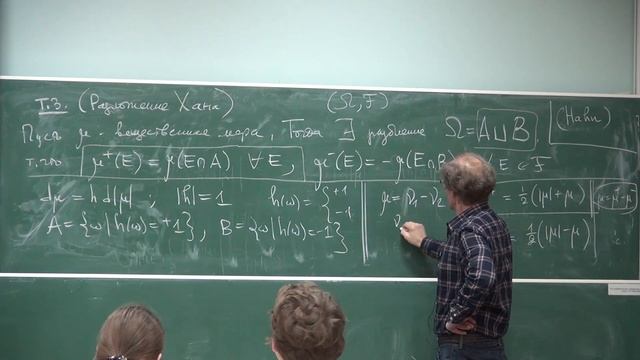 Т.3. (Разложение Хана) (Ω, F) (Hahn)
Пусть μ - вещественная мера, Тогда ∃ разбиение Ω = A ⊔ B,
т.что μ⁺(E) = μ(E∩A) ∀ E, μ⁻(E) = -μ(E∩B) ∀ E ∈ F
dμ = h d|μ|, |h| = 1 h(ω) = { +1 -1
A = {ω | h(ω) = +1}, B = {ω | h(ω) = -1}
μ = ν₁ - ν₂ = ½(|μ| + μ) μ = μ⁺ - μ⁻
= ½(|μ| - μ)